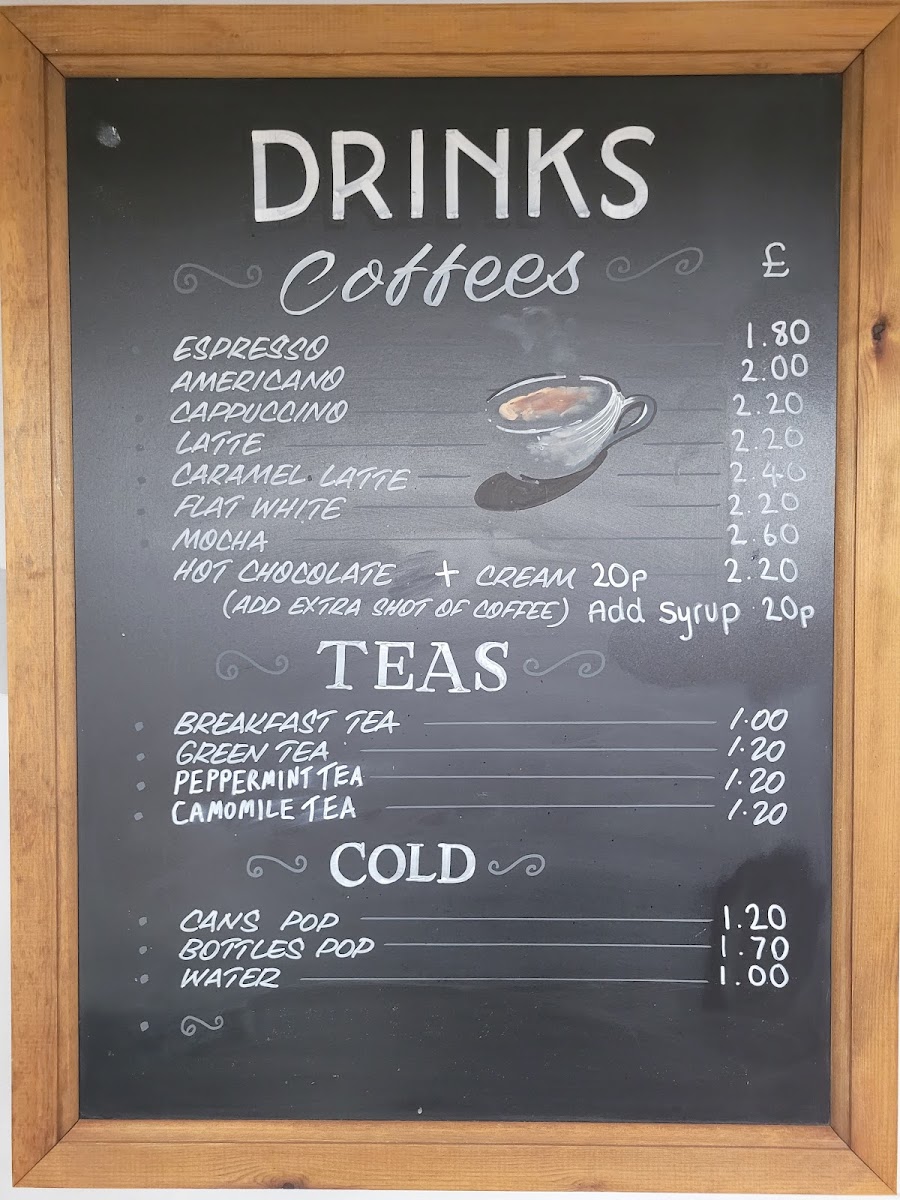 DRINKS
Coffees £
ESPRESSO 1.80
AMERICANO 2.00
CAPPUCCINO 2.20
LATTE 2.20
CARAMEL LATTE 2.40
FLAT WHITE 2.20
MOCHA 2.60
HOT CHOCOLATE + CREAM 20p 2.20
(ADD EXTRA SHOT OF COFFEE) Add Syrup 20p
TEAS
BREAKFAST TEA 1.00
GREEN TEA 1.20
PEPPERMINT TEA 1.20
CAMOMILE TEA 1.20
COLD
CANS POP 1.20
BOTTLES POP 1.70
WATER 1.00